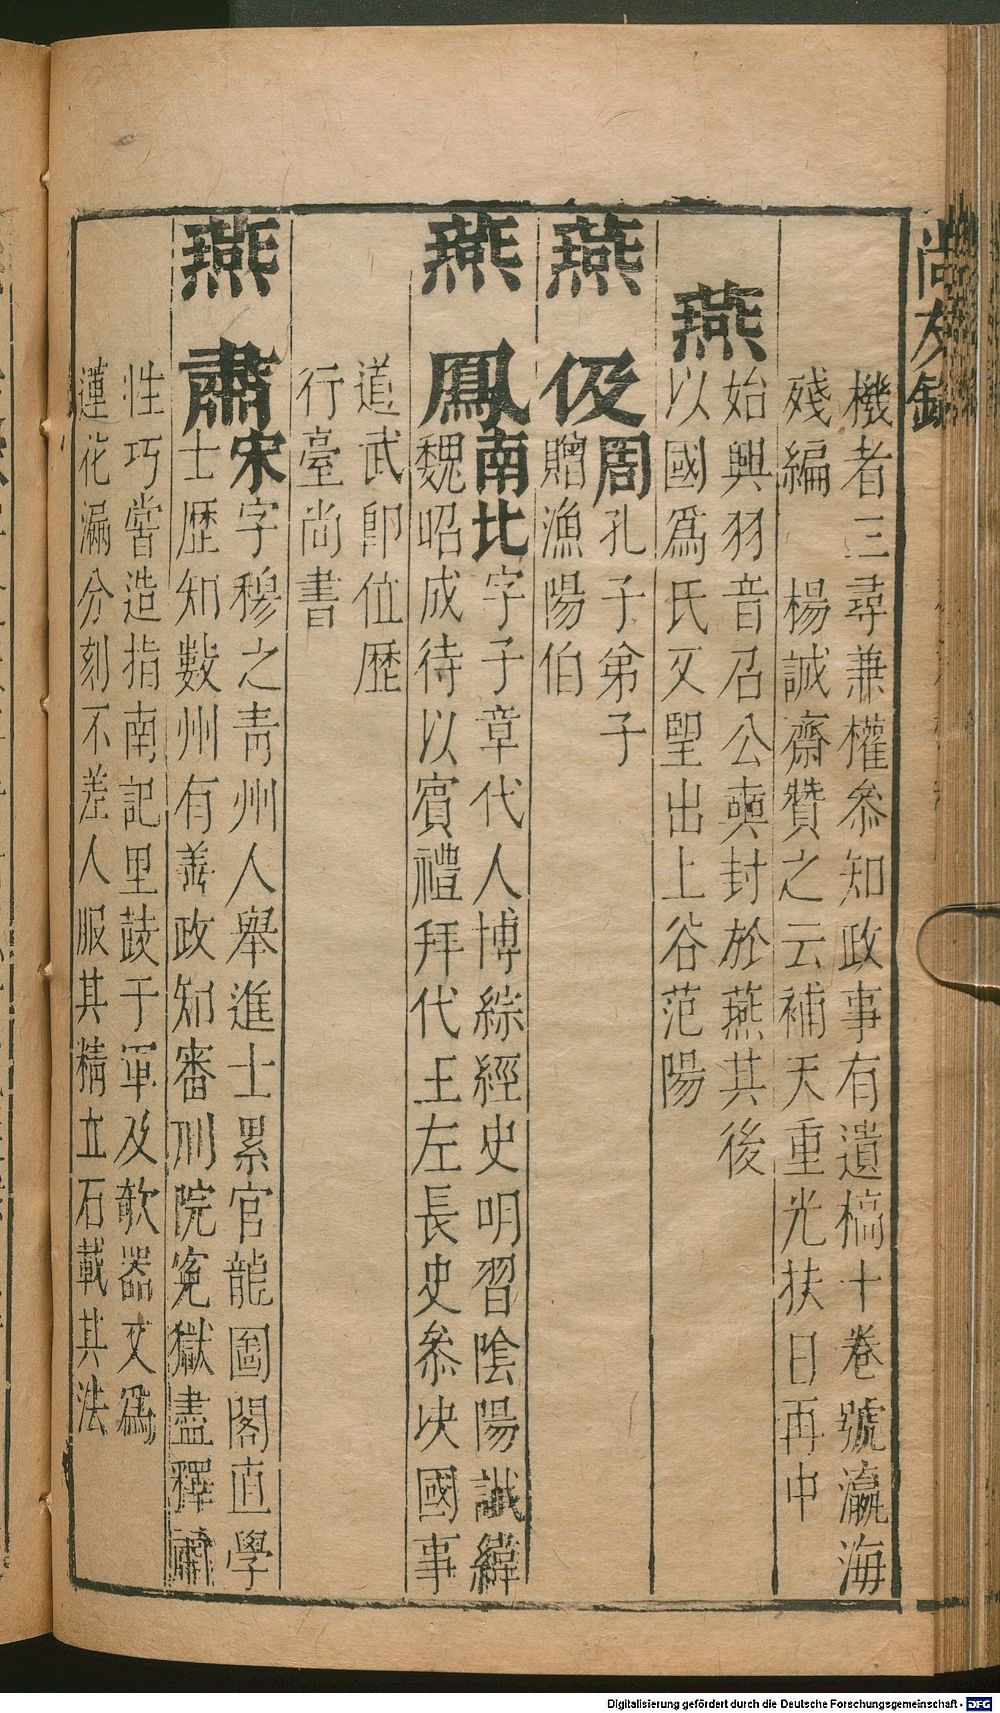 尚友錄
機者三尋兼權叅知政事有遺槁十卷號瀛海
殘編　楊誠齋贊之云補天重光扶日再中
燕
始興羽音召公奭封於燕其後
以國爲氏又聖出上谷范陽
燕伋
周孔子弟子
贈漁陽伯
燕鳳
南北字子章代人博綜經史明習陰陽讖緯
魏昭成待以賓禮拜代王左長史叅决國事
道武卽位歷
行臺尚書
燕肅
宋字穆之青州人舉進士累官龍圖閣直學
士歷知數州有善政知審刑院寃獄盡釋肅
性巧嘗造指南記里鼓于軍及欹器又爲
蓮花漏分刻不差人服其精立石載其法
Digitalisierung gefördert durch die Deutsche Forschungsgemeinschaft - DFG